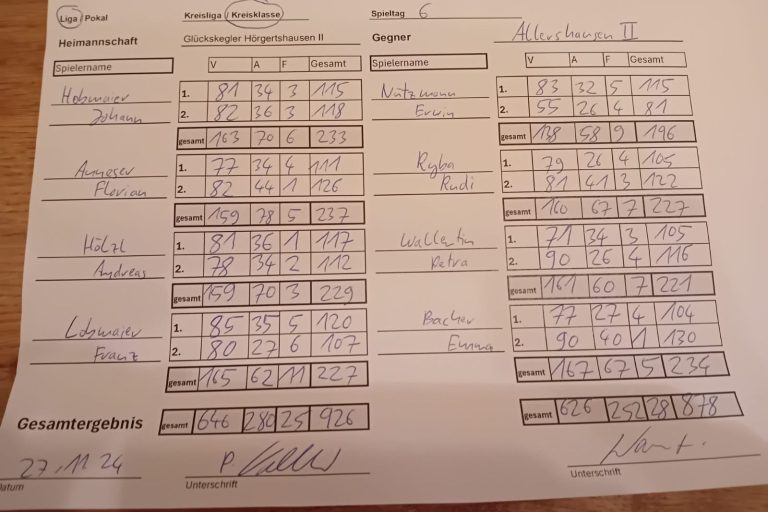 Liga / Pokal Kreisliga / Kreisklasse Spieltag 6
Heimannschaft Glückskegler Hörgertshausen II Gegner Allershausen II
Spielername V A F Gesamt Spielername V A F Gesamt
Hobmaier 1. 81 34 3 115 Nützmann 1. 83 32 5 115
Johann 2. 82 36 3 118 Erwin 2. 55 26 4 81
gesamt 163 70 6 233 gesamt 138 58 9 196
1. 77 34 4 111 Ryba 1. 79 26 4 105
Florian 2. 82 44 1 126 Rudi 2. 81 41 3 122
gesamt 159 78 5 237 gesamt 160 67 7 227
Hölzl 1. 81 36 1 117 Wallentin 1. 71 34 3 105
Andreas 2. 78 34 2 112 Petra 2. 90 26 4 116
gesamt 159 70 3 229 gesamt 161 60 7 221
Lobmaier 1. 85 35 5 120 Bacher 1. 77 27 4 104
Franz 2. 80 27 6 107 Emma 2. 90 40 1 130
gesamt 165 62 11 227 gesamt 167 67 5 234
Gesamtergebnis gesamt 646 280 25 926 gesamt 626 252 28 878
27.11.24 P.
Datum Unterschrift Unterschrift